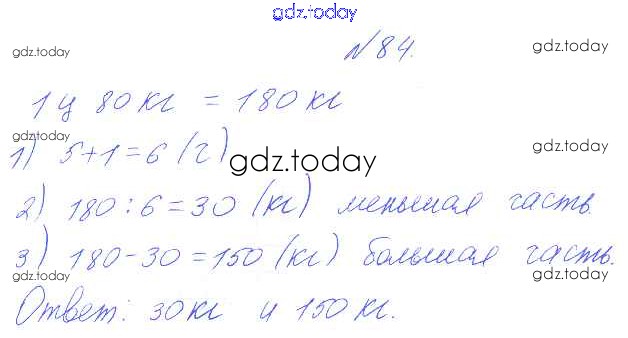 gdz.today
№84.
gdz.today gdz.today
1 ц 80 кг = 180 кг
1) 5+1=6 (г)
gdz.today gdz.today gdz.today
2) 180:6=30 (кг) меньшая часть.
gdz.today gdz.today
3) 180-30=150 (кг) большая часть.
gdz.today gdz.today
Ответ: 30 кг и 150 кг.